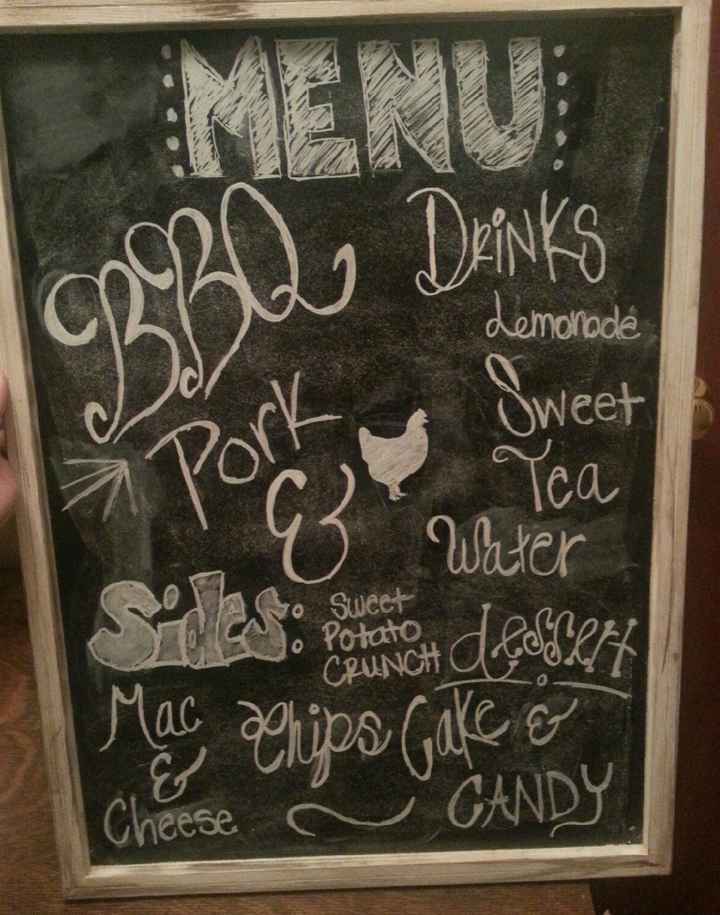 MENU
BBQ
Pork
&
DRiNKS
Lemonade
Sweet
Tea
Water
Sides:
Sweet
Potato
CRUNCH
Mac
&
Cheese
Chips
dessert
Cake &
CANDY